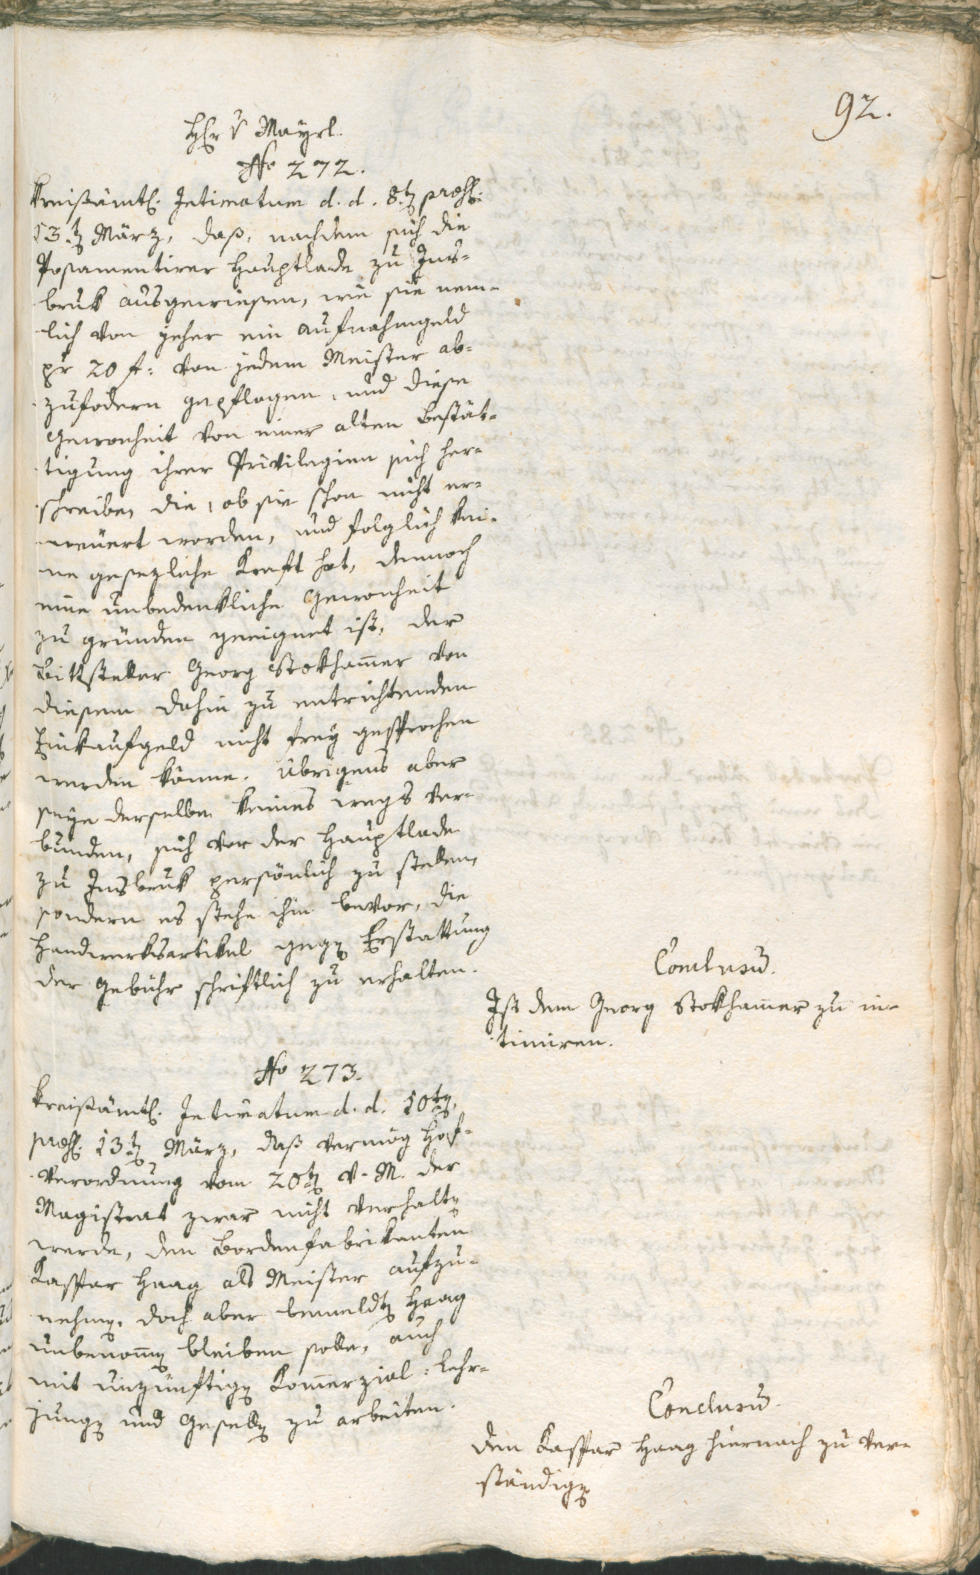 92.
Herr v Mayrl.
No 272.
Kreisämtl. Intimatum d. d. 8.t præs:
13.t März, daß, nachdem sich die
Posamentirer Hauptlade zu Ins-
bruk ausgewiesen, wie sie nem-
lich von jeher ein Aufnahmgeld
pr 20 f: von jedem Meister ab-
zufodern gepflogen, und diese
Gewonheit von einer alten Bestät-
tigung ihrer Privilegien sich her-
schreibe, die, ob sie schon nicht er-
neuert worden, und folglich kei-
ne gesezliche Kraft hat, dennoch
eine unbedenkliche Gewonheit
zu gründen geeignet ist, der
Bittsteller Georg Stokhamer von
diesem dahin zu entrichtenden
Einkaufgeld nicht frey gesprochen
werden könne. Übrigens aber
seye derselbe keines wegs ver-
bunden, sich vor der Hauptlade
zu Insbruk persönlich zu stellen,
sondern es stehe ihm bevor, die
Handwerksartikel gegen Erstattung
der Gebühr schriftlich zu erhalten.
Conclusum.
Ist dem Georg Stokhamer zu in-
timiren.
No 273.
Kreisämtl. Intimatum d. d. 10ten,
præs: 13.t März, daß vermög Hof-
verordnung vom 20.t v. M. der
Magistrat zwar nicht verhalten
werde, den Bordenfabrikanten
Kaspar Haag als Meister aufzu-
nehmen, doch aber bemeldten Haag
unbenommen bleiben solle, auch
mit unzünftigen Komerzial: Lehr-
jungen und Gesellen zu arbeiten.
Conclusum.
Den Kaspar Haag hiernach zu ver-
ständigen